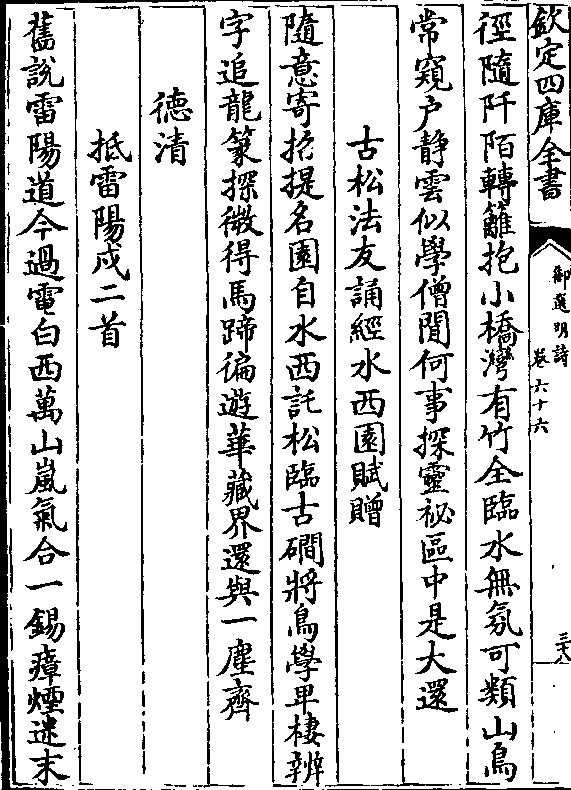 欽定四庫全書
御選明詩
卷六十六
三十八
徑隨阡陌轉籬抱小橋灣有竹全臨水無氛可類山鳥
常窺户静雲似學僧閒何事探靈祕區中是大還
古松法友誦經水西園賦贈
隨意寄招提名園自水西託松臨古磵將鳥學卑棲辨
字追龍篆探微得馬蹄徧遊華藏界還與一塵齊
徳清
抵雷陽戍二首
舊説雷陽道今過電白西萬山嵐氣合一錫瘴煙迷末